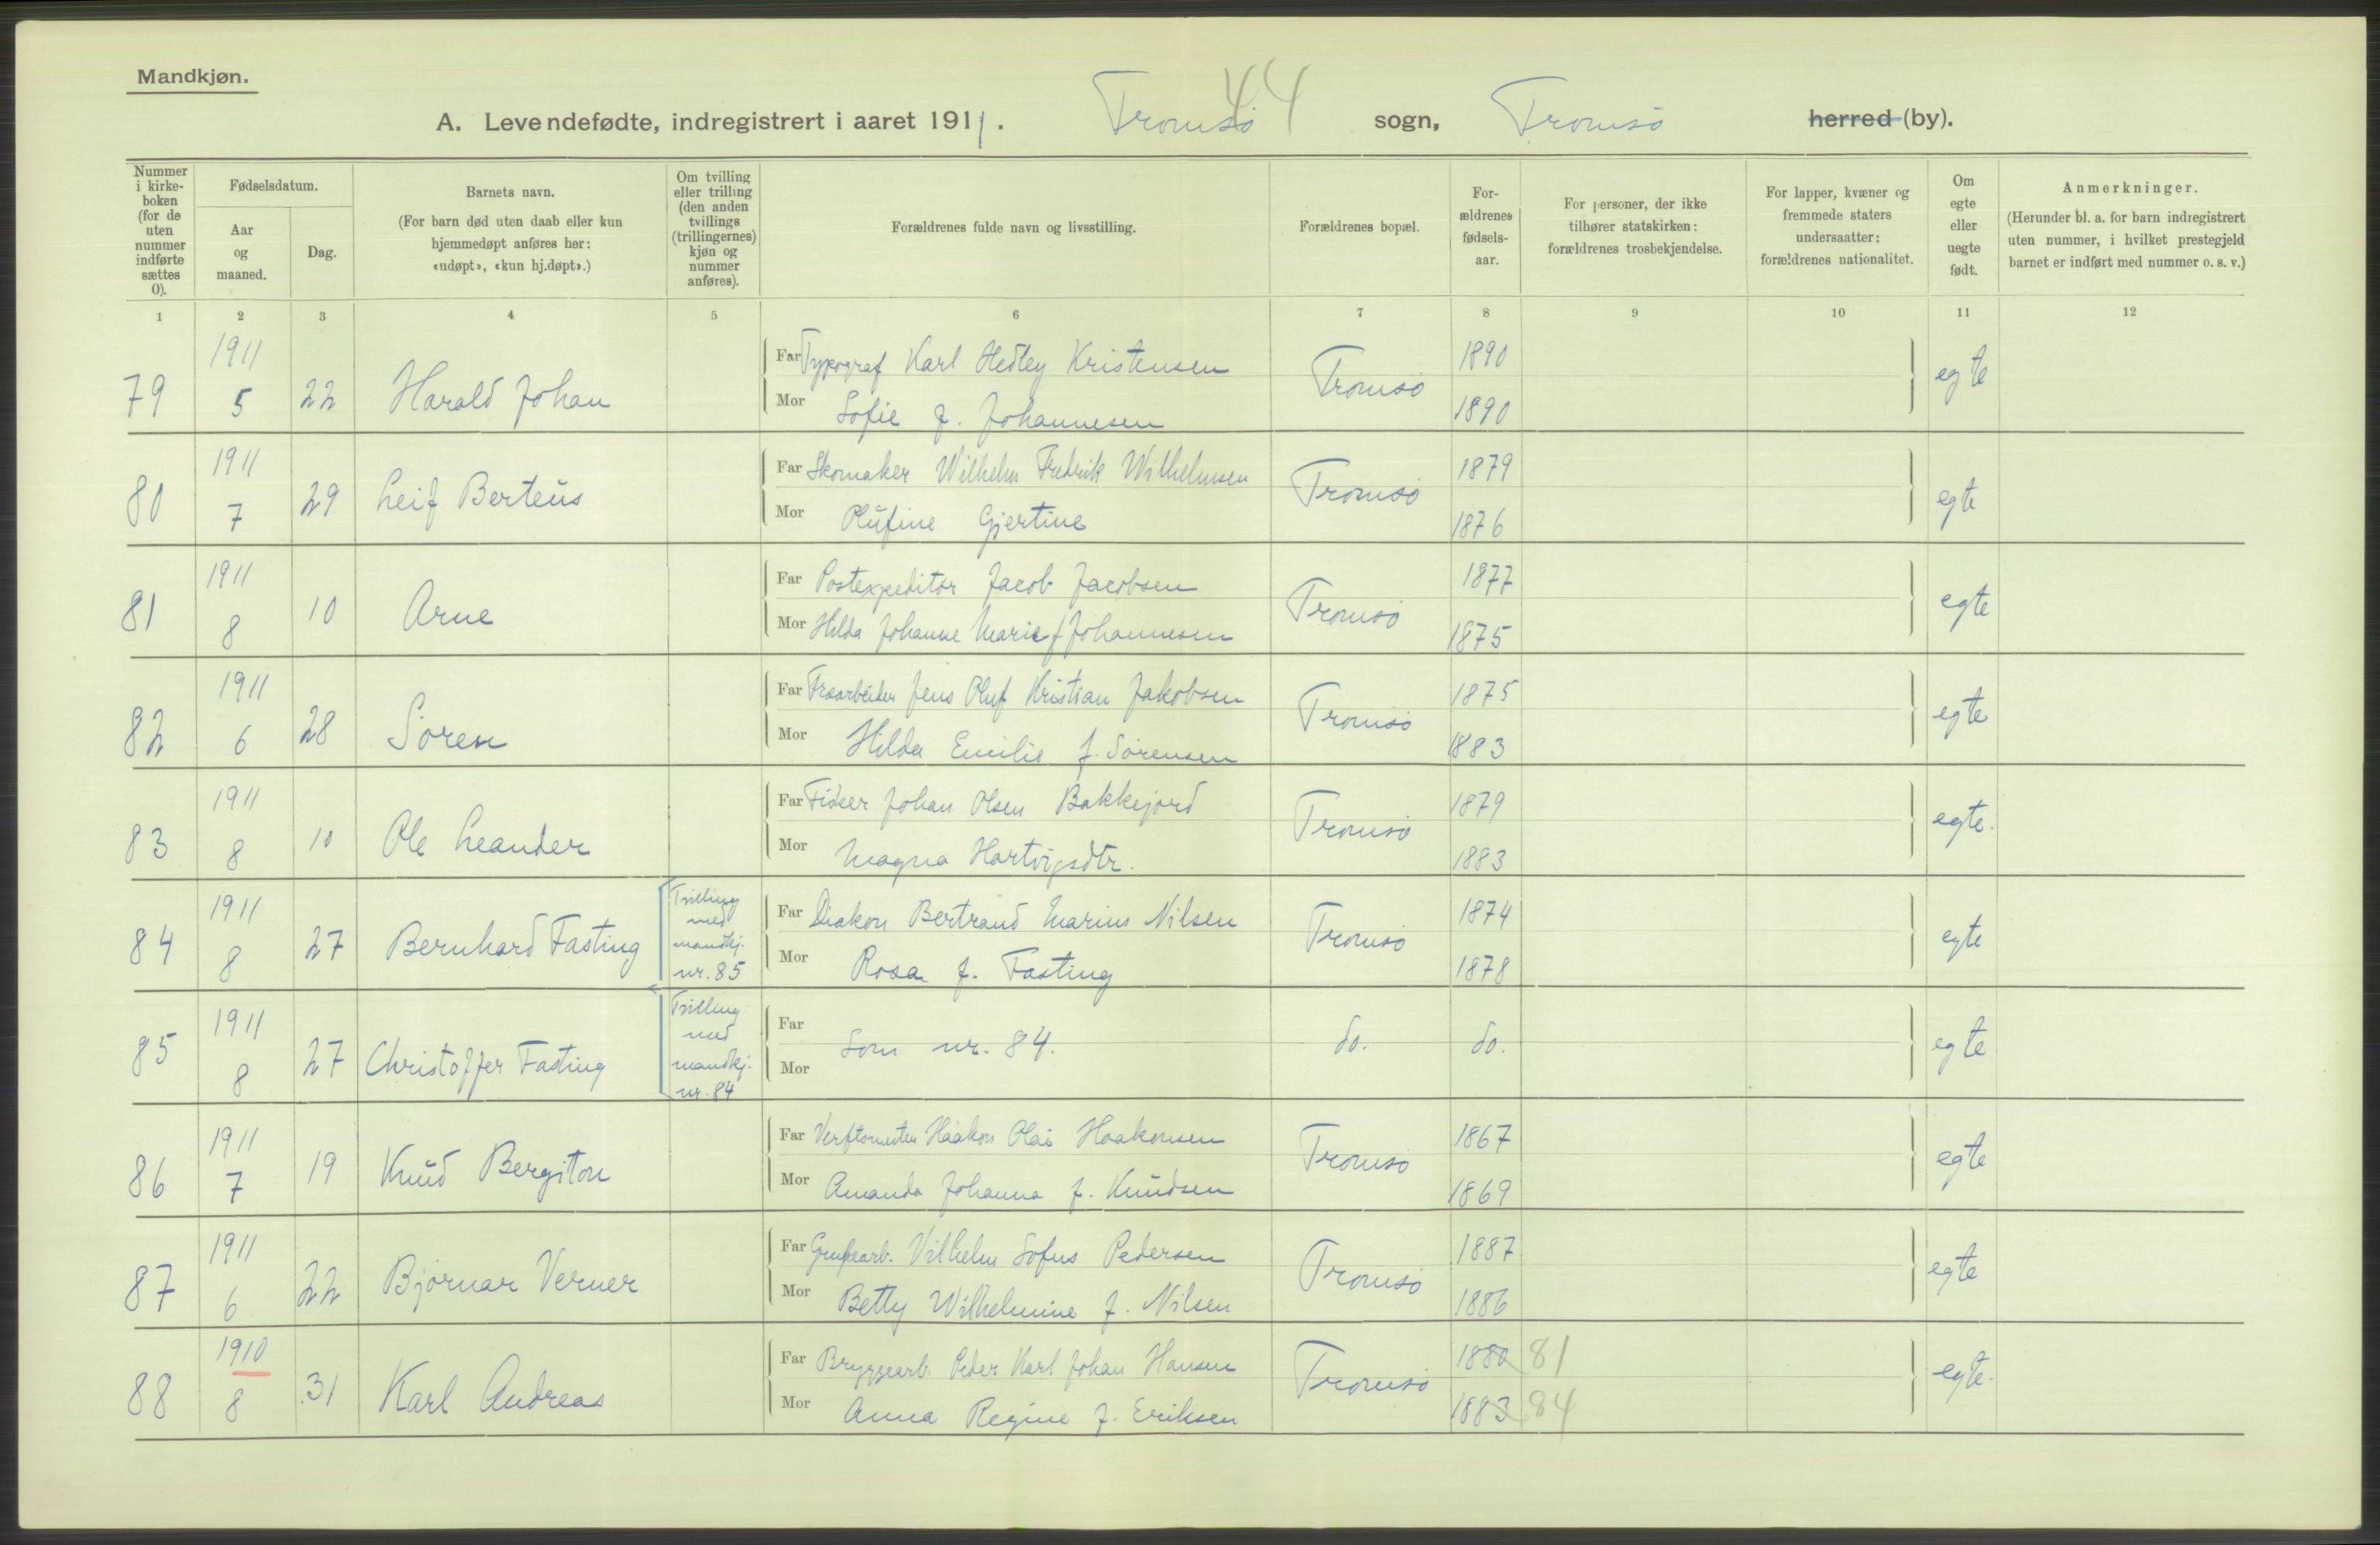 Mandkjøn.
44
A. Levendefødte, indregistrert i aaret 1911. Tromsø sogn, Tromsø herred (by).
Nummer i kirke- boken (for de uten nummer indførte sættes 0).
Fødselsdatum.
Aar og maaned.
Dag.
Barnets navn.
(For barn død uten daab eller kun hjemmedøpt anføres her: «udøpt», «kun hj.døpt».)
Om tvilling eller trilling (den anden tvillings (trillingernes) kjøn og nummer anføres).
Forældrenes fulde navn og livsstilling.
Forældrenes bopæl.
For- ældrenes fødsels- aar.
For personer, der ikke tilhører statskirken: forældrenes trosbekjendelse.
For lapper, kvæner og fremmede staters undersaatter: forældrenes nationalitet.
Om egte eller uegte født.
Anmerkninger.
(Herunder bl. a. for barn indregistrert uten nummer, i hvilket prestegjeld barnet er indført med nummer o. s. v.)
1 2 3 4 5 6 7 8 9 10 11 12
79 1911 5 22 Harald Johan
Far Typograf Karl Hedley Kristensen Tromsø 1890 egte
Mor Sofie f. Johannesen 1890
80 1911 7 29 Leif Berteus
Far Skomaker Wilhelm Fredrik Wilhelmsen Tromsø 1879 egte
Mor Olufine Gjertine 1876
81 1911 8 10 Arne
Far Postexpeditør Jacob Jacobsen Tromsø 1877 egte
Mor Hilda Johanne Marie f Johannesen 1875
82 1911 6 28 Sören
Far Træarbeider Jens Oluf Kristian Jakobsen Tromsø 1875 egte
Mor Hilda Emilie f. Sörensen 1883
83 1911 8 10 Ole Leander
Far Fisker Johan Olsen Bakkejord Tromsø 1879 egte.
Mor Magna Hartvigsdtr. 1883
84 1911 8 27 Bernhard Fasting Trilling med mandkj. nr. 85
Far Diakon Bertrand Marius Nilsen Tromsø 1874 egte
Mor Rosa f. Fasting 1878
85 1911 8 27 Christoffer Fasting Trilling med mandkj. nr. 84
Far Mor Som nr. 84. do. do. egte
86 1911 7 19 Knud Bergiton
Far Verftsmester Haakon Olai Haakonsen Tromsø 1867 egte
Mor Amanda Johanna f. Knudsen 1869
87 1911 6 22 Bjørnar Verner
Far Grubearb. Vilhelm Sofus Pedersen Tromsø 1887 egte
Mor Betty Wilhelmine f. Nilsen 1886
88 1910 8 31 Karl Andreas
Far Bryggearb. Peder Karl Johan Hansen Tromsø 1880 81 egte.
Mor Anna Regine f. Eriksen 1883 84